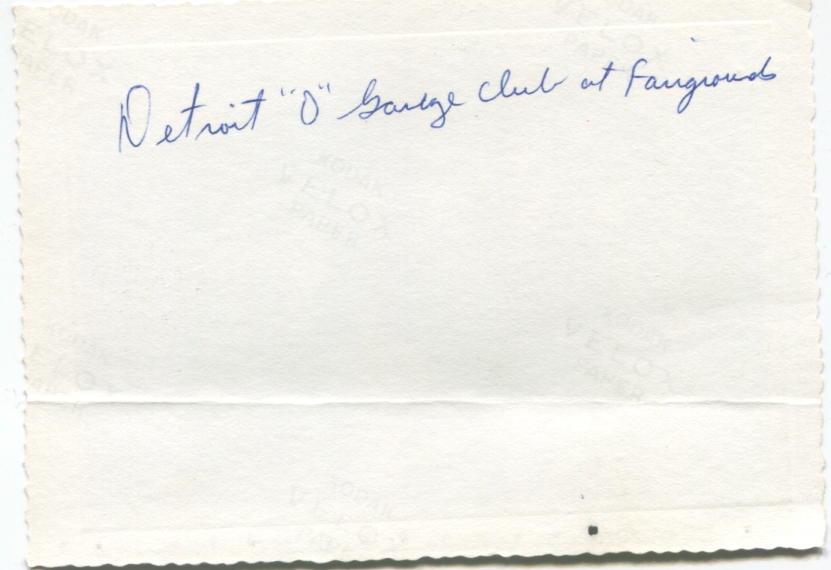 Detroit "O" Gauge Club at Fairgrounds
KODAK
VELOX
PAPER
KODAK
VELOX
PAPER
KODAK
VELOX
PAPER
KODAK
VELOX
PAPER
KODAK
VELOX
PAPER
KODAK
VELOX
PAPER